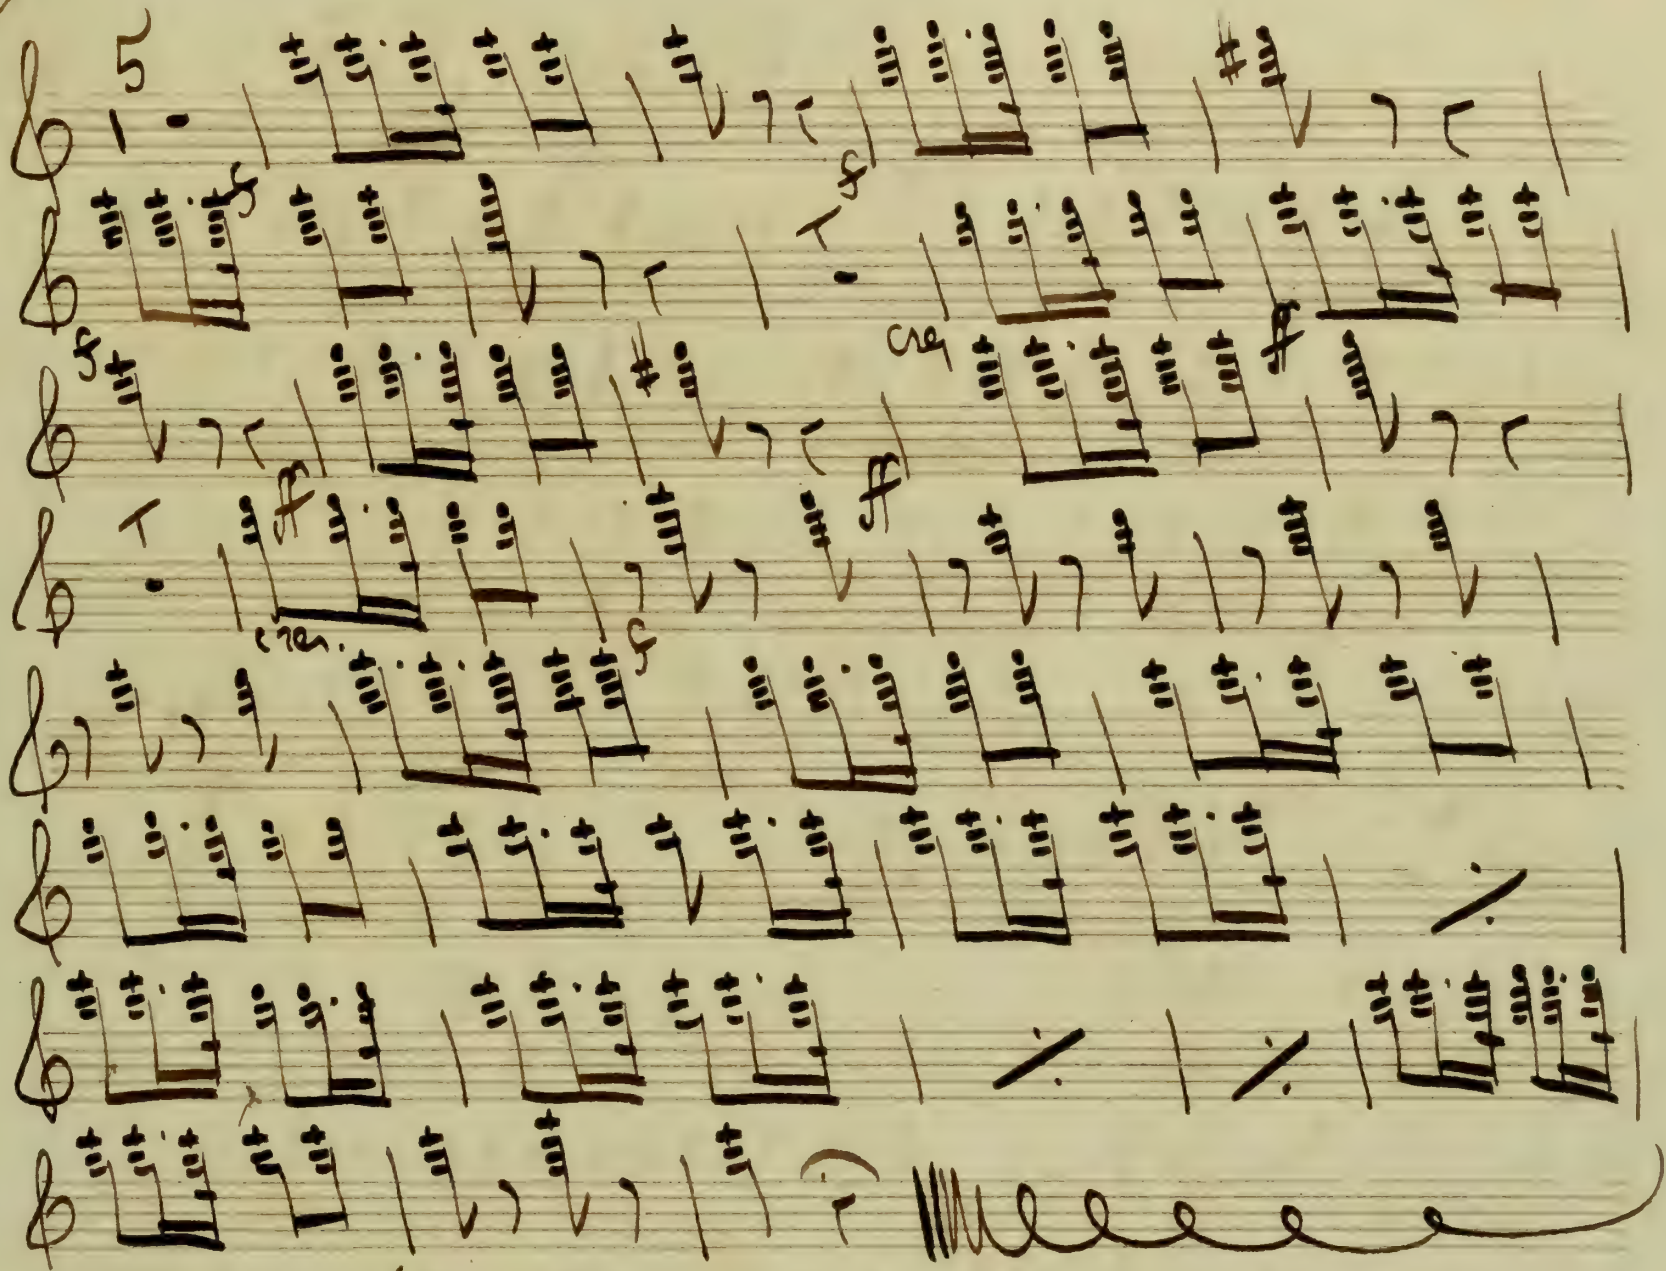 5
f f
f cresc
ff ff
ff
cres. f